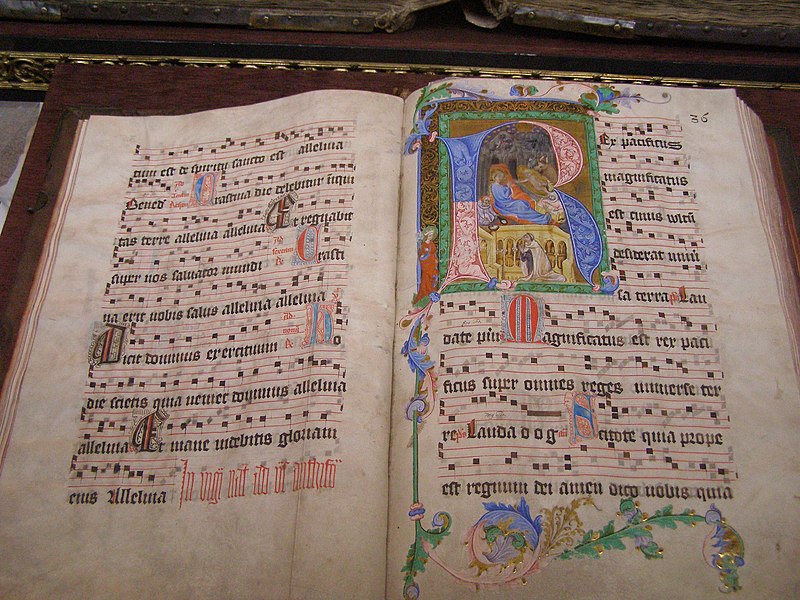 tum est de spiritu sancto est alleluia
Bened Crastina die delebitur iniqui
tas terre alleluia alleluia Et regnabit
super nos salvator mundi Crasti
na erit vobis salus alleluia alleluia
Dicit dominus exercituum Ho
die scietis quia veniet dominus alleluia
alleluia Et mane videbitis gloriam
eius Alleluia
36
Rex pacificus
magnificatus
est cuius vultū
desiderat univer
sa terra Lau
date puī Magnificatus est rex paci
ficus super omnes reges universe ter
re Lauda d o g Scitote quia prope
est regnum dei amen dico vobis quia